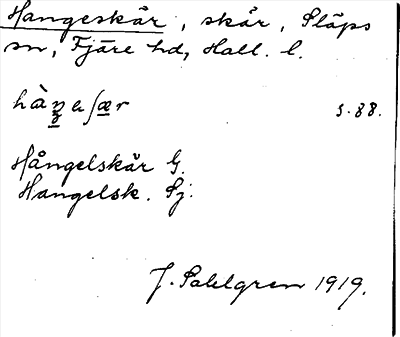 Hangeskär, skär, Släps
sn, Fjäre hd, Hall. l.
s. 88.
Hångelskär G.
Hangelsk. Sj.
J. Sahlgren 1919.